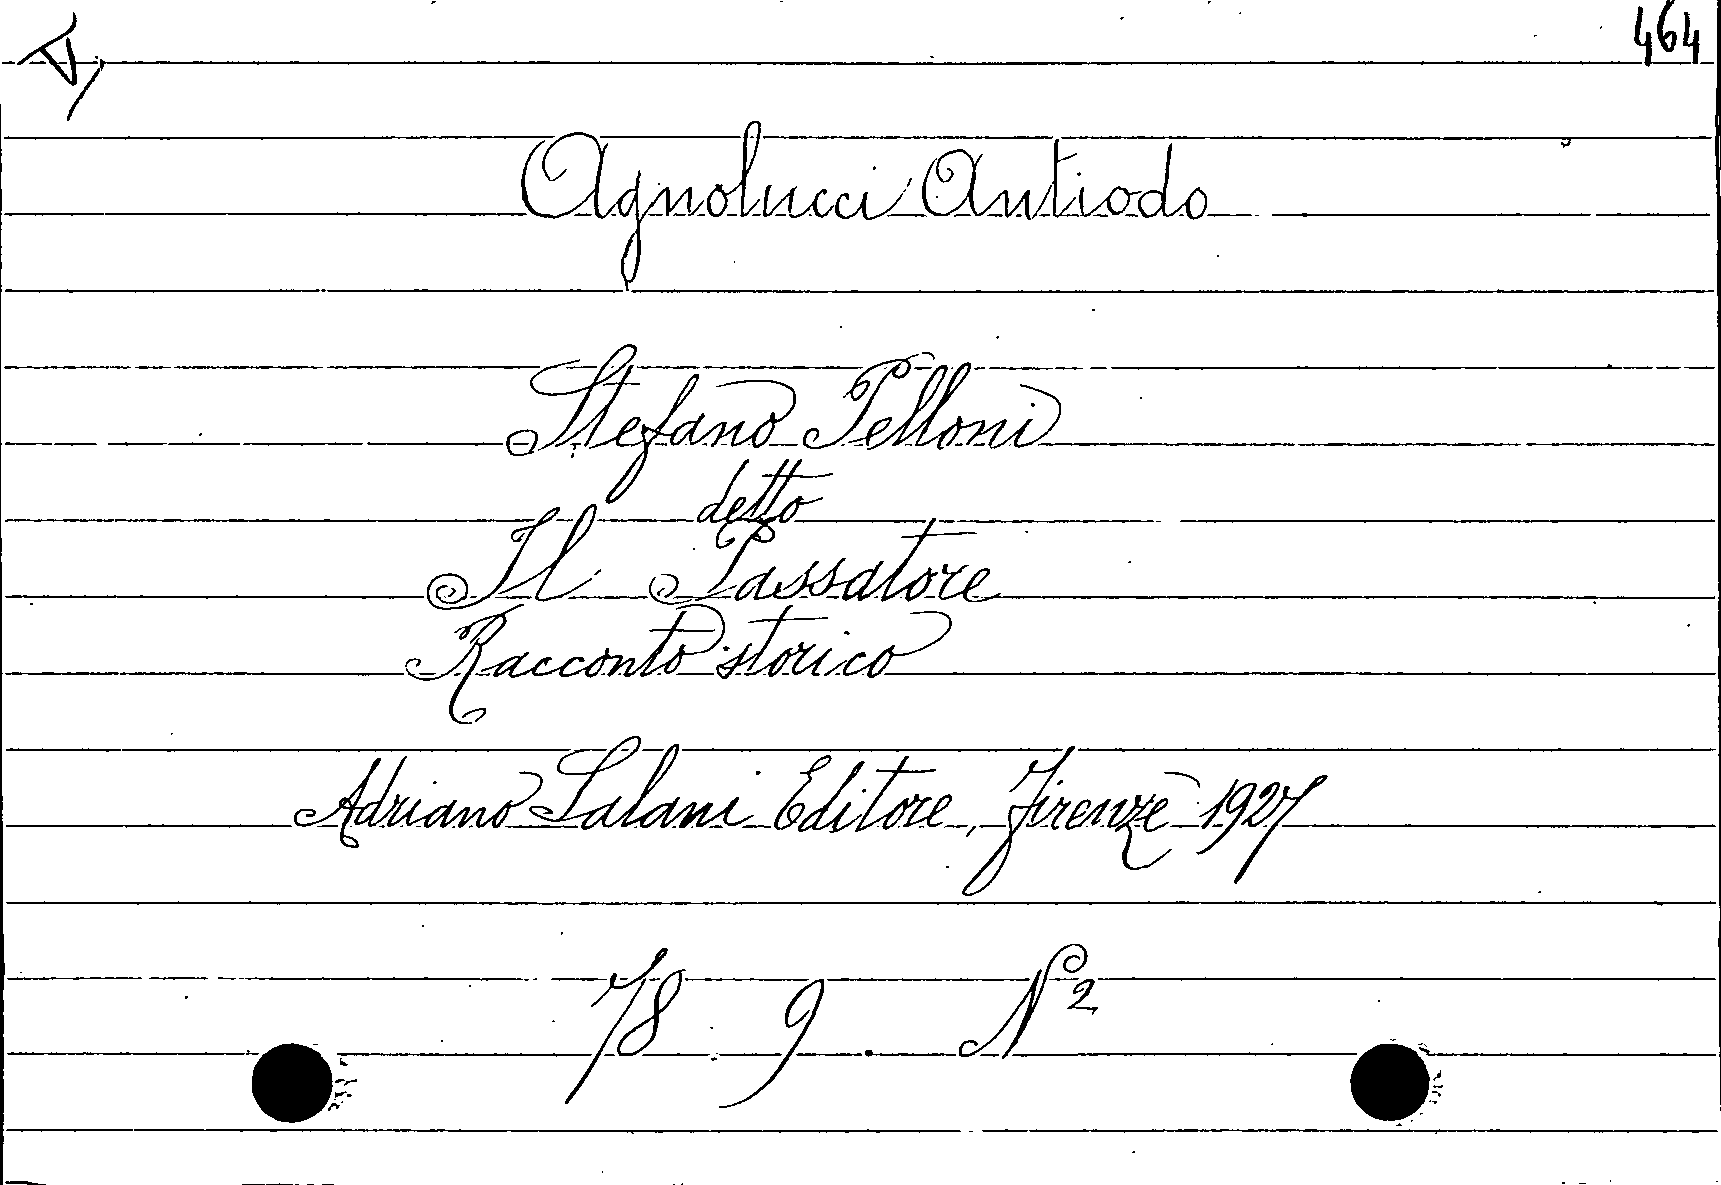 A,
464
Agnolucci Antiodo
Stefano Pelloni
detto
Il Passatore
Racconto storico
Adriano Salani Editore, Firenze 1927
78 9. N 2